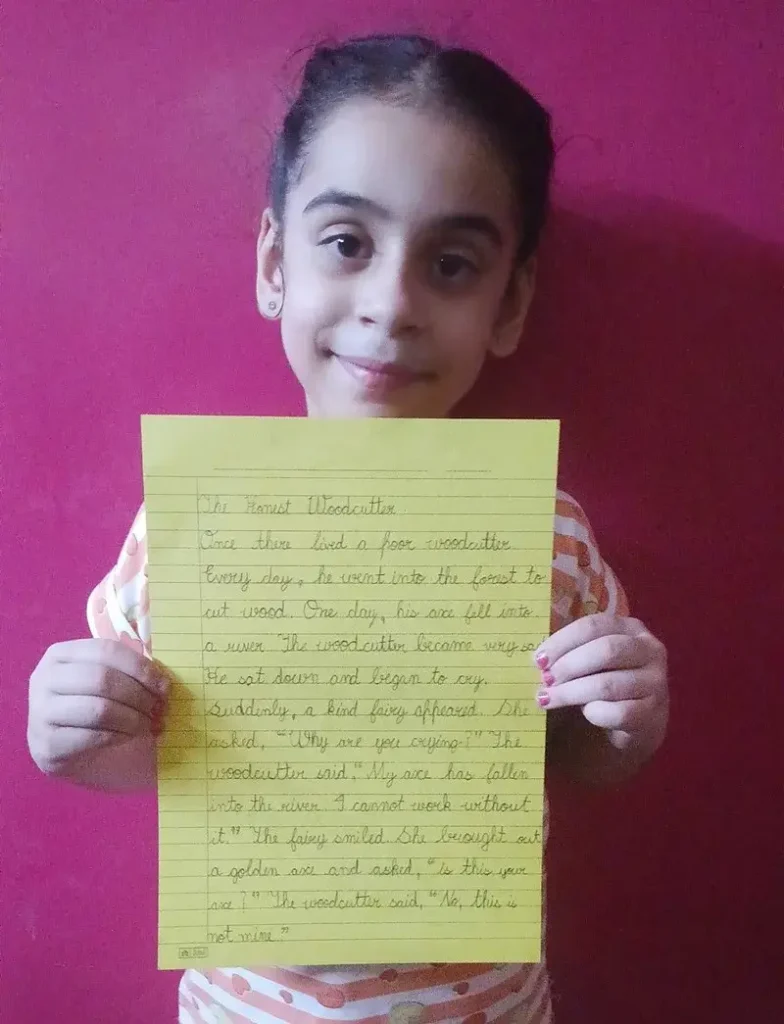 The Honest Woodcutter
Once there lived a poor woodcutter.
Every day, he went into the forest to
cut wood. One day, his axe fell into
a river. The woodcutter became very sad
He sat down and began to cry.
Suddenly, a kind fairy appeared. She
asked, "Why are you crying?" The
woodcutter said, "My axe has fallen
into the river. I cannot work without
it." The fairy smiled. She brought out
a golden axe and asked, "is this your
axe?" The woodcutter said, "No, this is
not mine."